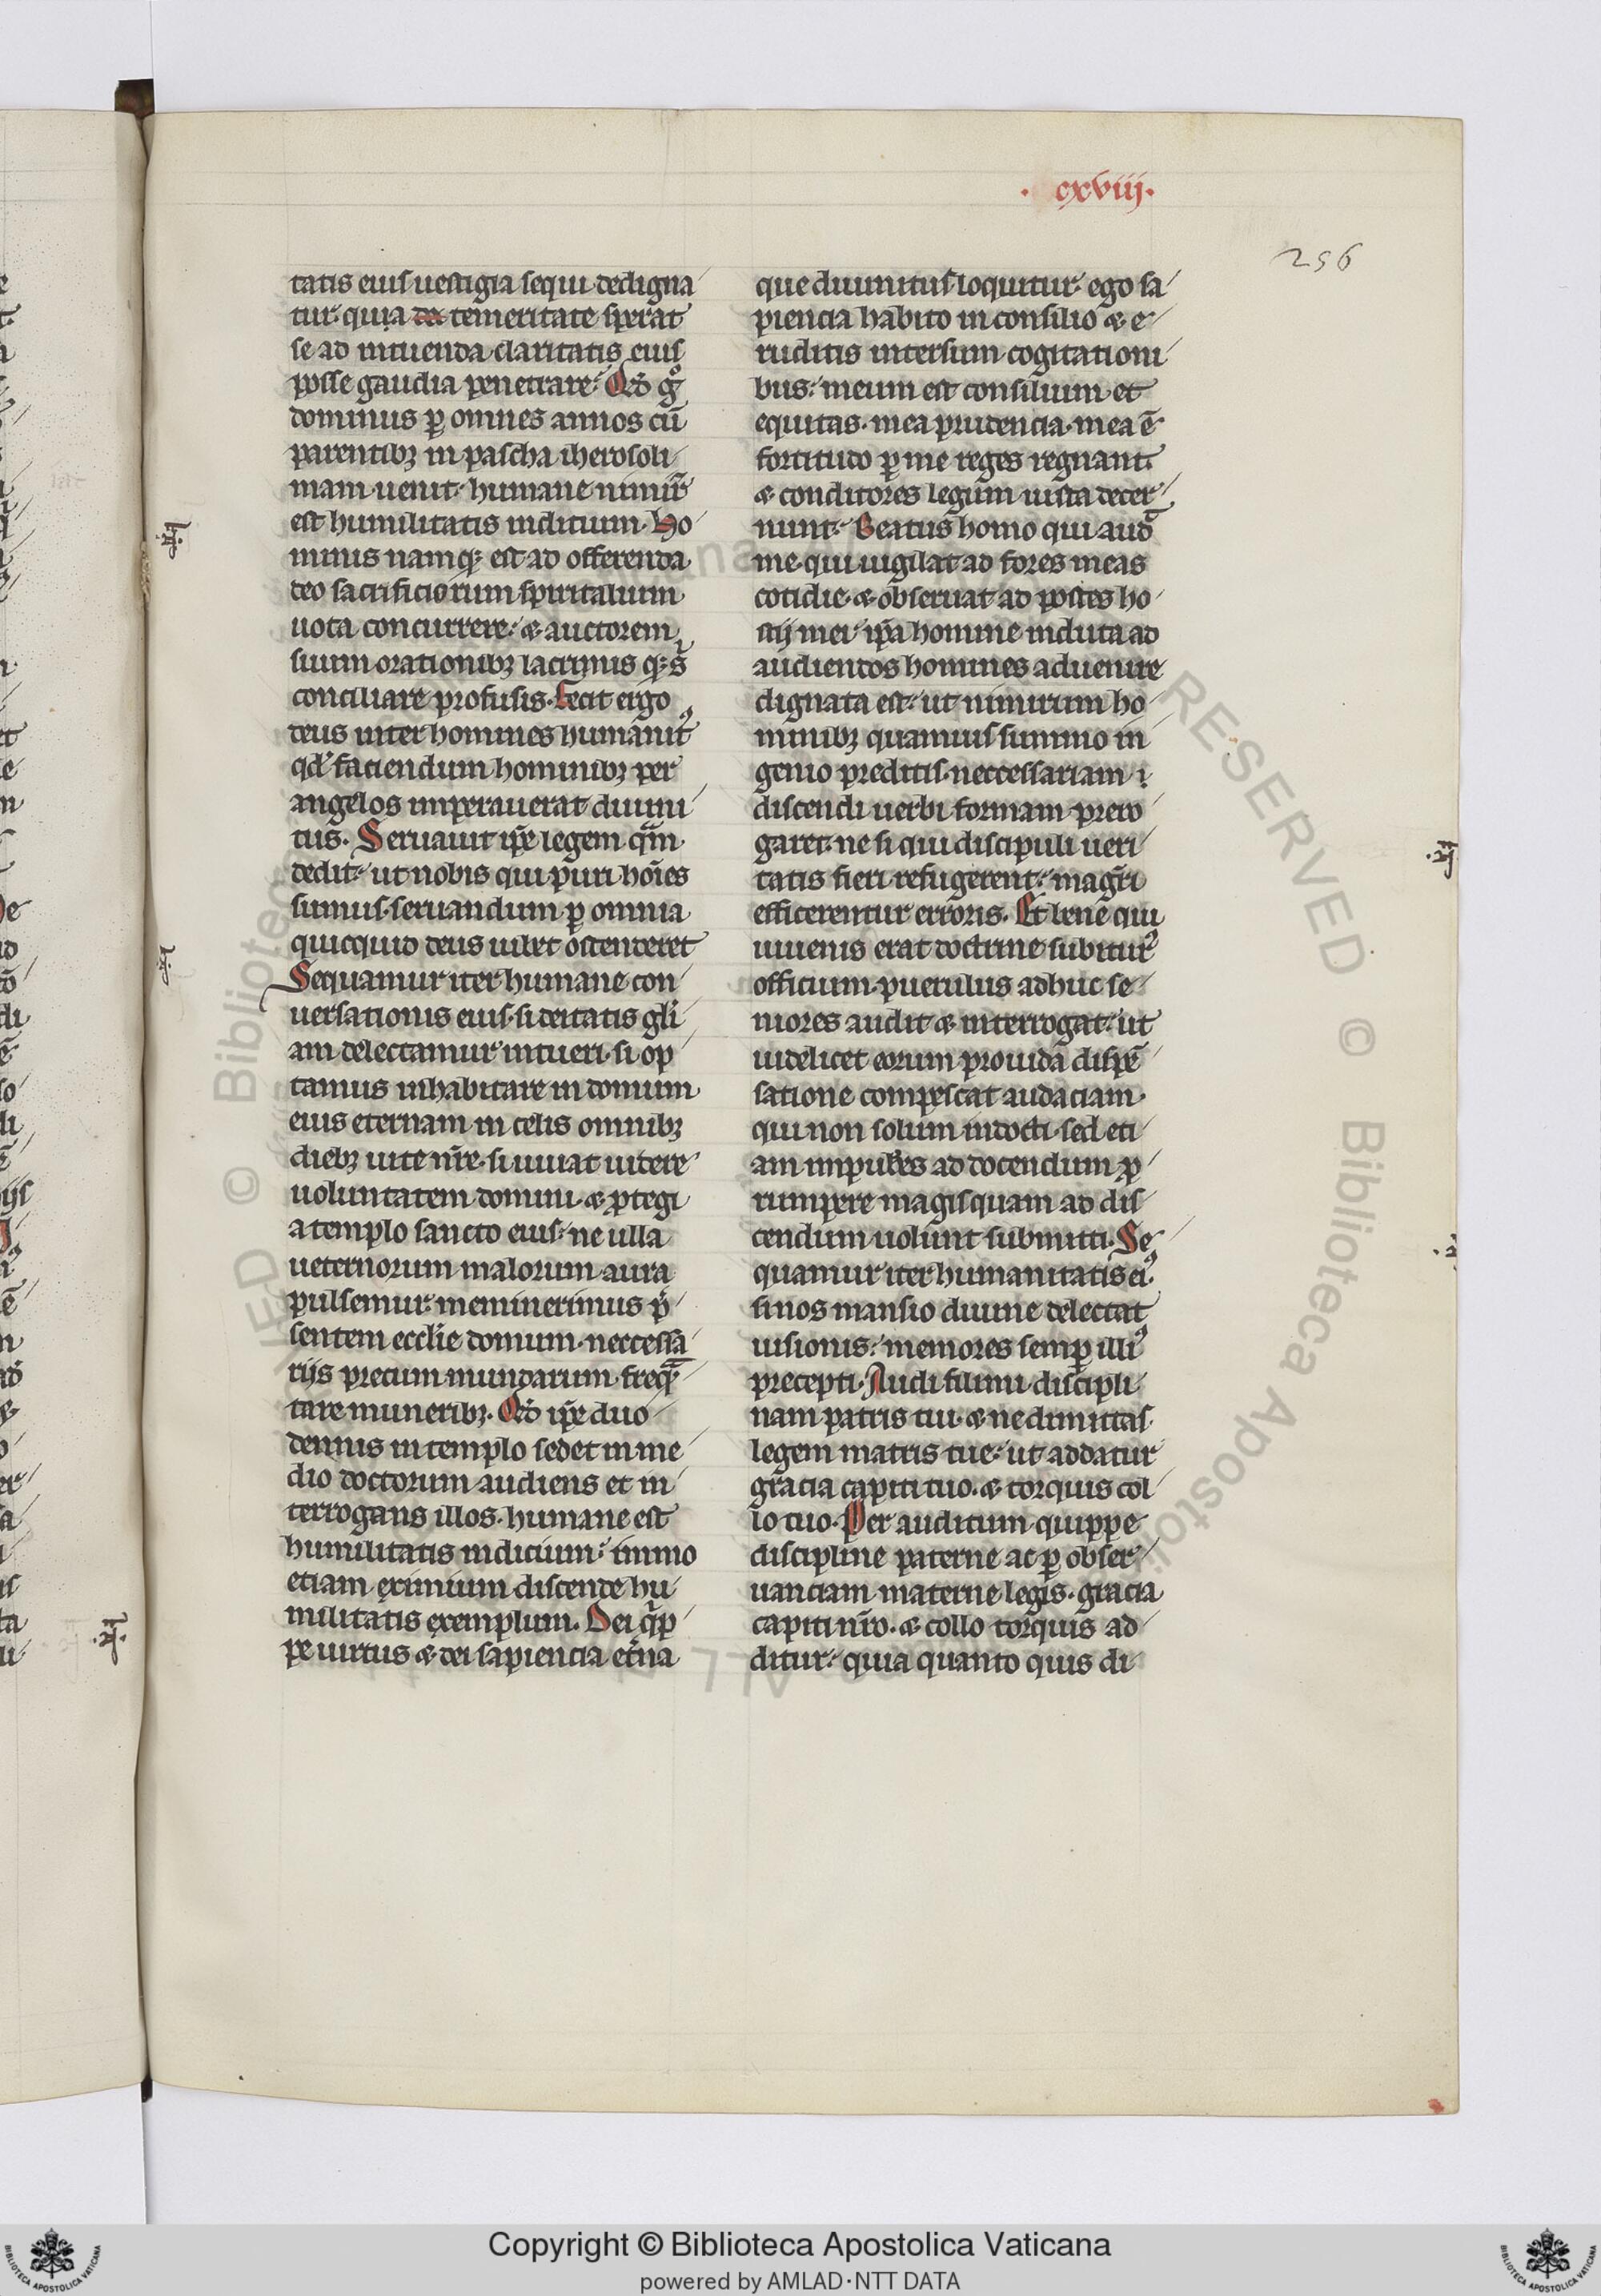 · cxviij·
256
tatis eius uestigia sequi dedigna
tur· quia de temeritate sperat
se ad intuenda claritatis eius
posse gaudia penetrare· Qd̄ gͦ
dominus ꝑ omnes annos cū
parentibꝫ in pascha iherosoli
mam uenit· humane nimiꝝ
est humilitatis inditium· Ho
minis namqꝫ est ad offerenda
deo sacrificiorum spiritalium
uota concurrere· ⁊ auctorem
suum orationibꝫ lacrimis qꝫ s̄
conciliare profusis· Fecit ergo
deus inter homines humanitꝰ
qd̄ faciendum hominibꝫ per
angelos imperauerat diuini
tus· Seruauit ip̄e legem quā
dedit· ut nobis qui puri hoīes
sumus· seruandum ꝑ omnia
quicquid deus iubet ostenderet
Sequamur iter humane con
uersationis eius· si deitatis gl̄i
am delectamur intueri· si op
tamus inhabitare in domum
eius eternam in celis omnibꝫ
diebꝫ uite nr̄e· si iuuat uidere
uoluntatem domini· ⁊ ꝓtegi
a templo sancto eius· ne ulla
ueternorum malorum aura
pulsemur· meminerimus p̄
sentem eccl̄ie domum· neccessa
rijs precum mundarum freq̄
tare muneribꝫ· Qd̄ ip̄e duo
dennis in templo sedet in me
dio doctorum audiens et in
terrogans illos· humane est
humilitatis indicium· immo
etiam eximium discende hu
militatis exemplum· Dei q̄p
pe uirtus ⁊ dei sapiencia et̄na
que diuinitus loquitur· ego sa
piencia habito in consilio ⁊ e
ruditis intersum cogitationi
bus· meum est consilium et
equitas· mea prudencia· mea ē
fortitudo ꝑ me reges regnant
⁊ conditores legum iusta decer
nunt· Beatus homo qui audᷓ
me· qui uigilat ad fores meas
cotidie· ⁊ obseruat ad postes ho
stij mei· ip̄a homine induta ad
audiendos homines aduenire
dignata est· ut nimirum ho
minibꝫ quamuis summo in
genio preditis· neccessariam
discendi uerbi formam prero
garet· ne si qui discipuli ueri
tatis fieri refugerent· magr̄i
efficerentur erroris· Et bene qui
iuuenis erat doctrine subiturꝰ
officium· puerulus adhuc se
niores audit ⁊ interrogat· ut
uidelicet eorum prouida dispē
satione compescat audaciam·
qui non solum indocti· sed eti
am impuberes ad docendum ꝓ
rumpere magis quam ad dis
cendum uolunt submitti· Se
quamur iter humanitatis eiꝰ·
si nos mansio diuine delectat
uisionis· memores semꝑ illiꝰ
precepti· Audi fili mi discipli
nam patris tui· ⁊ ne dimittas
legem matris tue· ut addatur
gracia capiti tuo· ⁊ torquis col
lo tuo· Per auditum quippe
discipline paterne ac ꝑ obser
uanciam materne legis· gracia
capiti nr̄o· ⁊ collo torquis ad
ditur· quia quanto quis di
© Biblioteca Apostolica
RESERVED
Copyright © Biblioteca Apostolica Vaticana
powered by AMLAD·NTT DATA